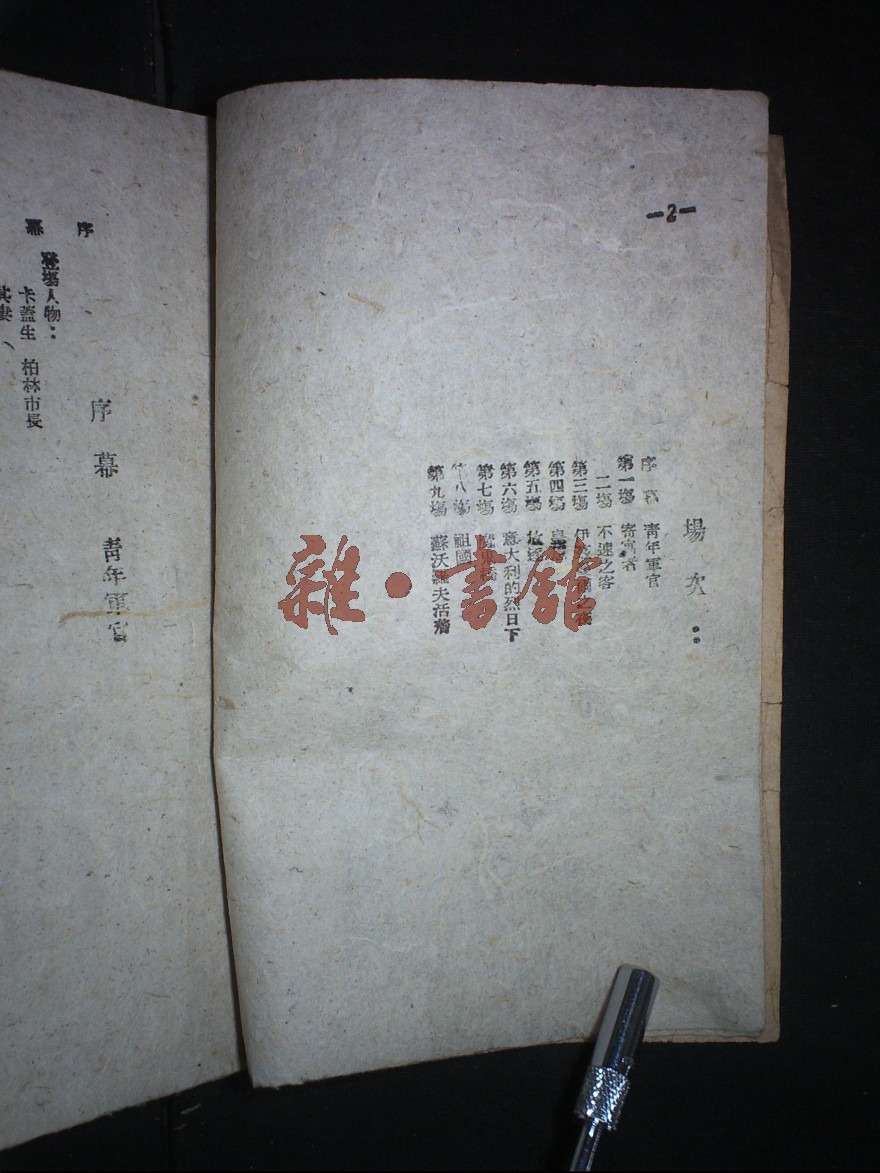 —2—
場次：
序幕 青年軍官
第一場 寄宿者
二場 不速之客
第三場 伊
第四場
第五場 放逐
第六場 意大利的烈日下
第七場
第八場 祖國
第九場 蘇沃羅夫活着
雜·書館
序幕
登場人物：
卡蓋生 柏林市長
其妻
序幕 青年軍官